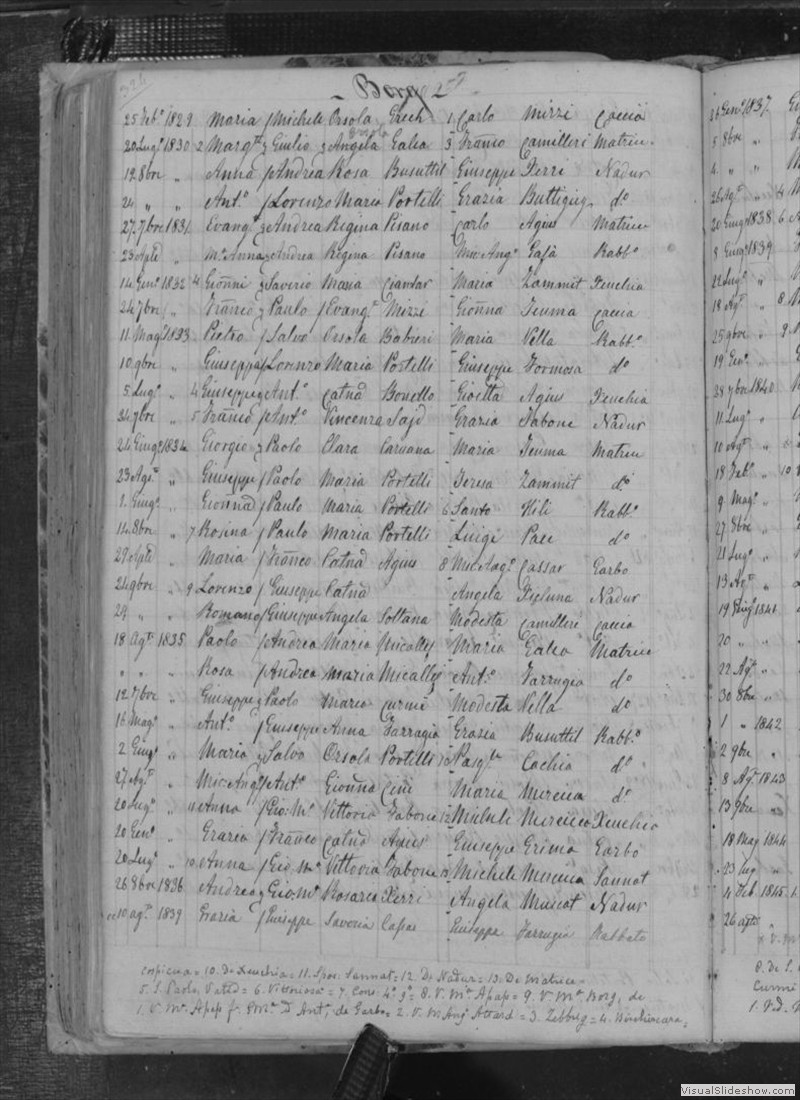 324
Borg 2º
25 Febº 1829 Maria / Michele Orsola Grech 1 Carlo Mizzi Caccia
20 Lugº 1830 2 Margta / Giulio Angela Galia 3 Franco Camilleri Matrice
Orsola
19 8bre " Anna / Andrea Rosa Busuttil Giuseppe Xerri Nadur
24 " " Antº / Lorenzo Maria Portelli Grazia Buttigieg dº
27 7bre 1831 Evangta Andrea Regina Pisano Carlo Agius Matrice
23 Aple " Mª Anna Andrea Regina Pisano Mic Angº Gafà Rabbº
14 Genº 1832 4 Gionni Saverio Maria Ciantar Maria Zammit Xeuchia
24 7bre " Franco Paulo / Evangta Mizzi Gionna Teuma Caccia
11 Magº 1833 Pietro / Salvo Orsola Maria Vella Rabbº
10 9bre " Giuseppa / Lorenzo Maria Portelli Giuseppe Formosa dº
5 Lugº " 4 Giuseppe Antº Catna Bonello Agius Xeuchia
24 7bre " 5 Franco / Antº Vincenza Sajd Grazia Tabone Nadur
24 Giugº 1834 Giorgio Paolo Clara Caruana Maria Teuma Matrice
23 Agtº " Giuseppe / Paolo Maria Portelli Teresa Zammit dº
1 Giugº " Gionna / Paulo Maria Portelli 6 Santo Xili Rabbº
14 8bre " 7 Rosina / Paulo Maria Portelli Luigi Pace dº
29 Aple " Maria / Franco Catna Agius 8 Mic Angº Cassar Garbo
24 9bre " 9 Lorenzo / Giuseppe Catna Angela Nadur
29 " " Romano / Giuseppe Angela Soltana Modesta Camilleri Caccia
18 Agtº 1835 Paolo / Andrea Maria Micallef Maria Galea Matrice
" " " Rosa / Andrea Maria Micallef Antº Farrugia dº
12 7bre " Giuseppe Paolo Maria Curmi Modesta Vella dº
16 Magº " Antº / Giuseppe Anna Farrugia Grazia Busuttil Rabbº
2 Giugº " Maria Salvo Orsola Portelli 10 Pasqle Cachia dº
27 Agtº " Mic Angº / Antº Gionna Cini Maria Mercieca dº
20 Lugº " 11 Anna / Gio Mª Vittoria Tabone 12 Michele Mercieca Xeuchia
20 Genº " Grazia / Franco Catna Agius Giuseppe Grima Garbo
20 Lugº " 10 Anna / Gio Mª Vittoria Tabone Michele Mercieca Sannat
26 8bre 1836 Andrea Gio Mª Rosaria Xerri Angela Muscat Nadur
10 agtº 1839 Grazia / Giuseppe Saveria Giuseppe Farrugia Rabbato
Cospicua = 10. Da Xeuchia = 11. Spos. Sannat = 12. Da Nadur = 13. Da Matrice
5. S. Paolo, Vated = 6. Vittoriosa = 7. Cons. 4º gº = 8. V. Mª Apap = 9. V Mª Borg, de
1. V. Mª Apap de Garbo = 2. V. M. Angº Attard = 3. Zebbug = 4. Birchircara,
Genº 1837
5 8bre "
4. " "
26 Agtº " 4
20 Giugº 1838 6
8 Giugº 1839
22 Lugº "
18 Agtº " 8
25 9bre " 9
19 Genº "
28 7bre 1840
11 Lugº "
10 Agtº "
18 Febº " 10
9 Magº "
27 8bre "
21 Lugº "
13 Agtº "
19 Giugº 1841
20 " "
22 Agtº "
30 8bre "
1 " 1842
2 9bre "
8 Agtº 1843
13 9bre "
18 Mag 1844
23 lug "
4 Feb 1845 1.
26 agto "
8. de S.
Curmi
1. V. d.
VisualSlideshow.com